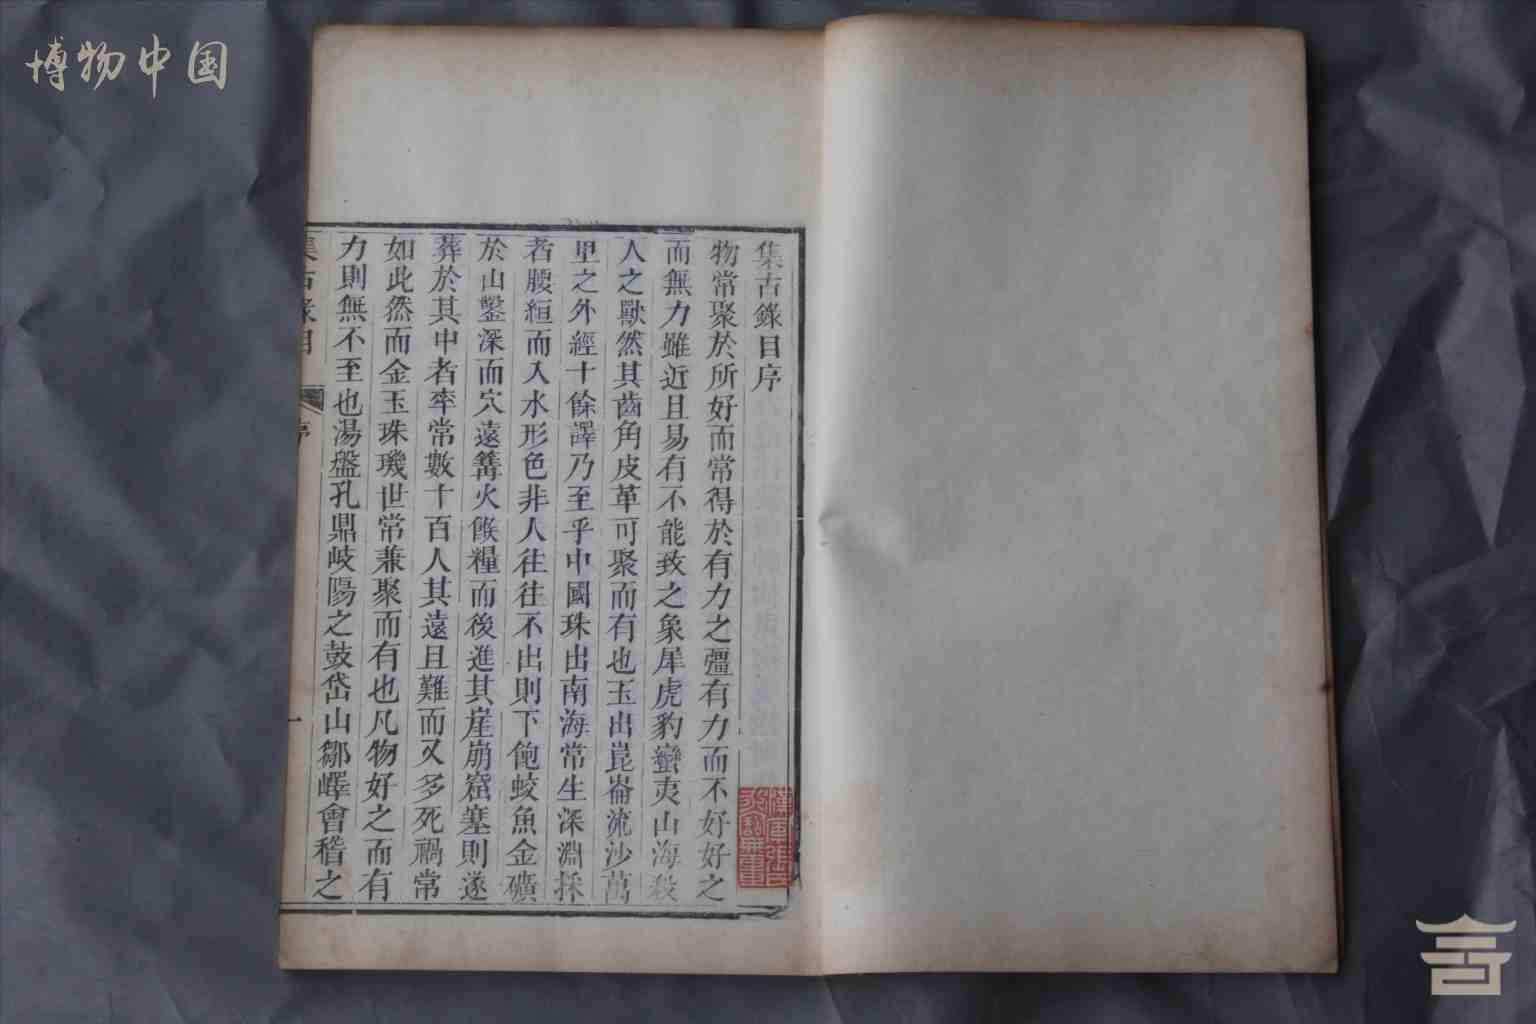 博物中国
集古錄目序
物常聚於所好而常得於有力之彊有力而不好好之
而無力雖近且易有不能致之象犀虎豹蠻夷山海殺
人之獸然其齒角皮革可聚而有也玉出崑崙流沙萬
里之外經十餘譯乃至乎中國珠出南海常生深淵採
者腰絙而入水形色非人往往不出則下飽蛟魚金礦
於山鑿深而穴遠篝火餱糧而後進其崖崩窟塞則遂
葬於其中者率常數十百人其遠且難而又多死禍常
如此然而金玉珠璣世常兼聚而有也凡物好之而有
力則無不至也湯盤孔鼎岐陽之鼓岱山鄒嶧會稽之
集古錄目
序
一